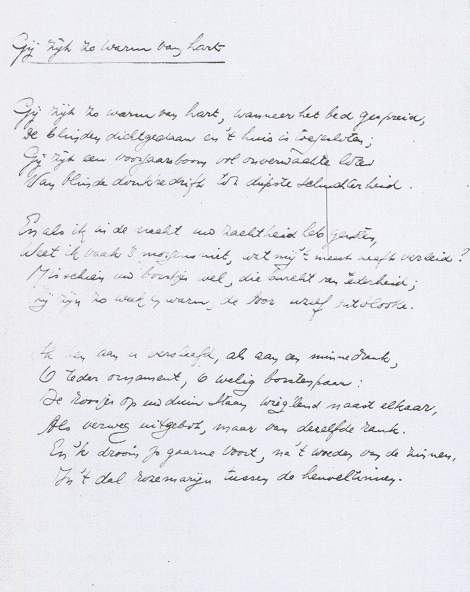 Gij zijt zo warm van hart
Gij zijt zo warm van hart, wanneer het bed gespreid,
De blinden dichtgedaan en 't huis is toegesloten;
Gij zijt een voorjaarsboom vol onverwachte loten
Van blinde donk're drift tot diepste schuchterheid.
En als ik in de nacht uw zachtheid heb genoten,
Weet ik vaak 's morgens niet, wat mij 't meest heeft verleid?
Misschien uw borstjes wel, die
Zij zijn zo week en warm, de
Ik ben aan u verslaafd, als aan een minnedrank,
O teder ornament, o welig borstenpaar:
De roosjes op uw duin staan wieglend naast elkaar,
Als verweg uitgebot, maar van dezelfde rank.
En 'k droom zo gaarne voort, na 't woeden van de zinnen,
In 't dal rozemarijn tussen de heuveltinnen.